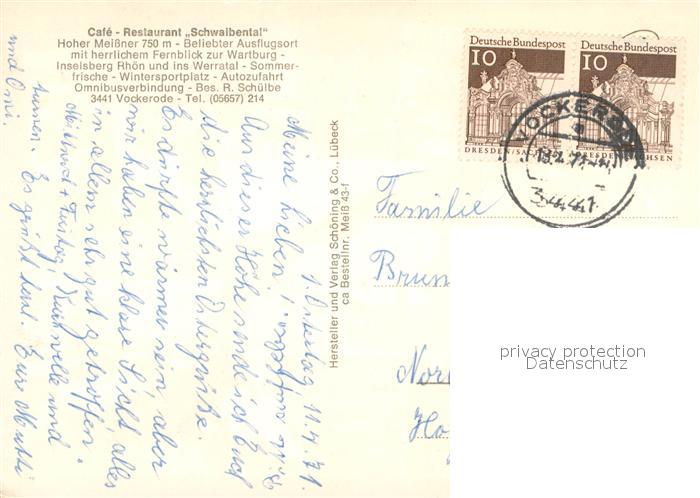 Café - Restaurant „Schwalbental“
Hoher Meißner 750 m - Beliebter Ausflugsort
mit herrlichem Fernblick zur Wartburg -
Inselsberg Rhön und ins Werratal - Sommer-
frische - Wintersportplatz - Autozufahrt
Omnibusverbindung - Bes. R. Schülbe
3441 Vockerode - Tel. (05657) 214
Deutsche Bundespost
10
DRESDEN/SACHSEN
Deutsche Bundespost
10
DRESDEN/SACHSEN
VOCKERODE
3441
1. Ostertag 11.4.71.
Meine Lieben!
Aus dieser Höhe sende ich Euch
die herzlichsten Ostergrüße.
Es dürfte wärmer sein aber
wir haben eine klare Sicht, alles
in allem sehr gut getroffen.
Mittwoch + Freitag und
turnen. Es grüßt herzl. Eure Mutti
und Omi.
Hersteller und Verlag Schöning & Co., Lübeck
ca Bestellnr. Meiß 43-f
Familie
Brun
Nor
Ho
privacy protection
Datenschutz